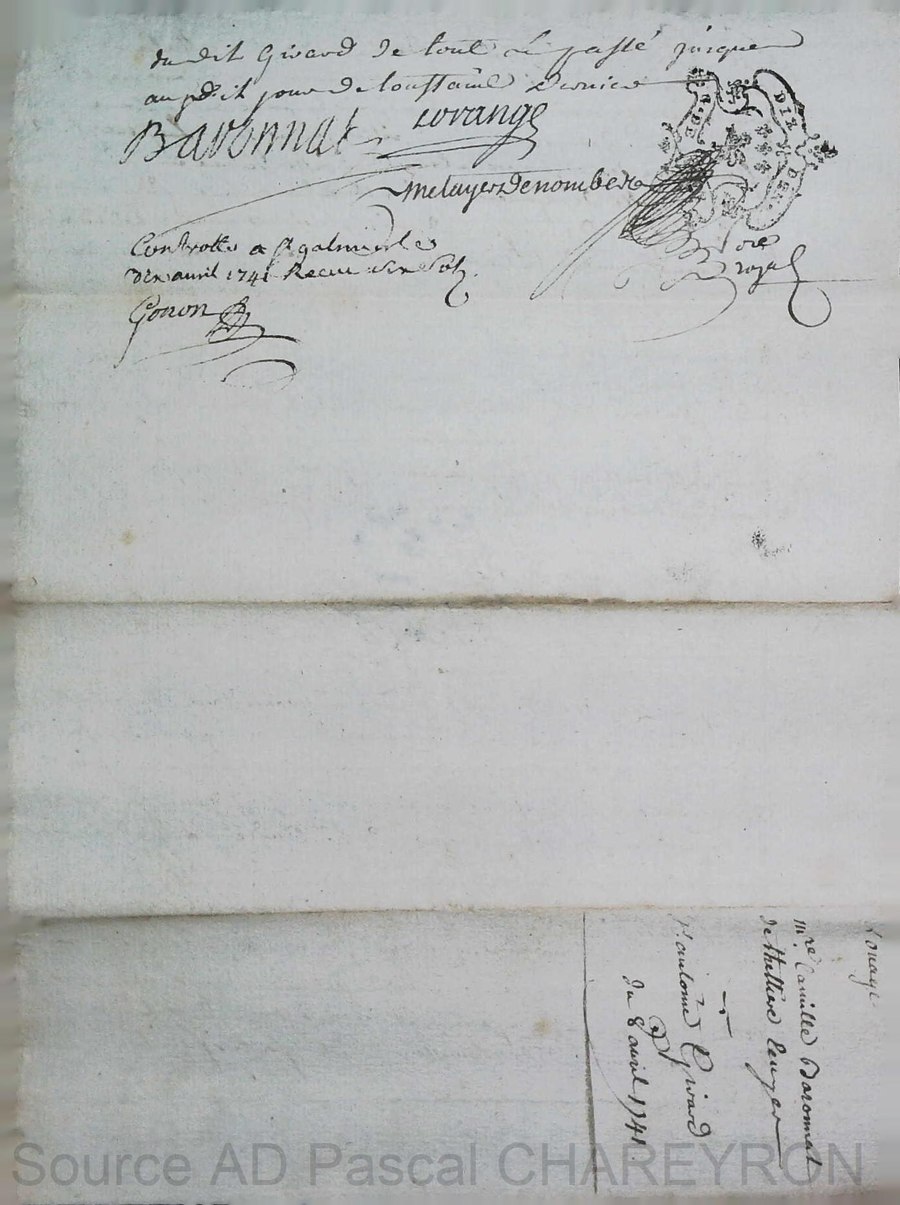 du dit Girard de tout le passé jusques
au pdit jour de toussaint dernier
Baronnat corange
melayer denombere
DIX DEN.
Controllé a st galmier le
dix avril 1741 Receu six sols
Gonon
nore
Royal
Louage
mre Camille Baronnat
de theillere Ecuyer
à
Girard
du 8 avril 1741
Source AD Pascal CHAREYRON